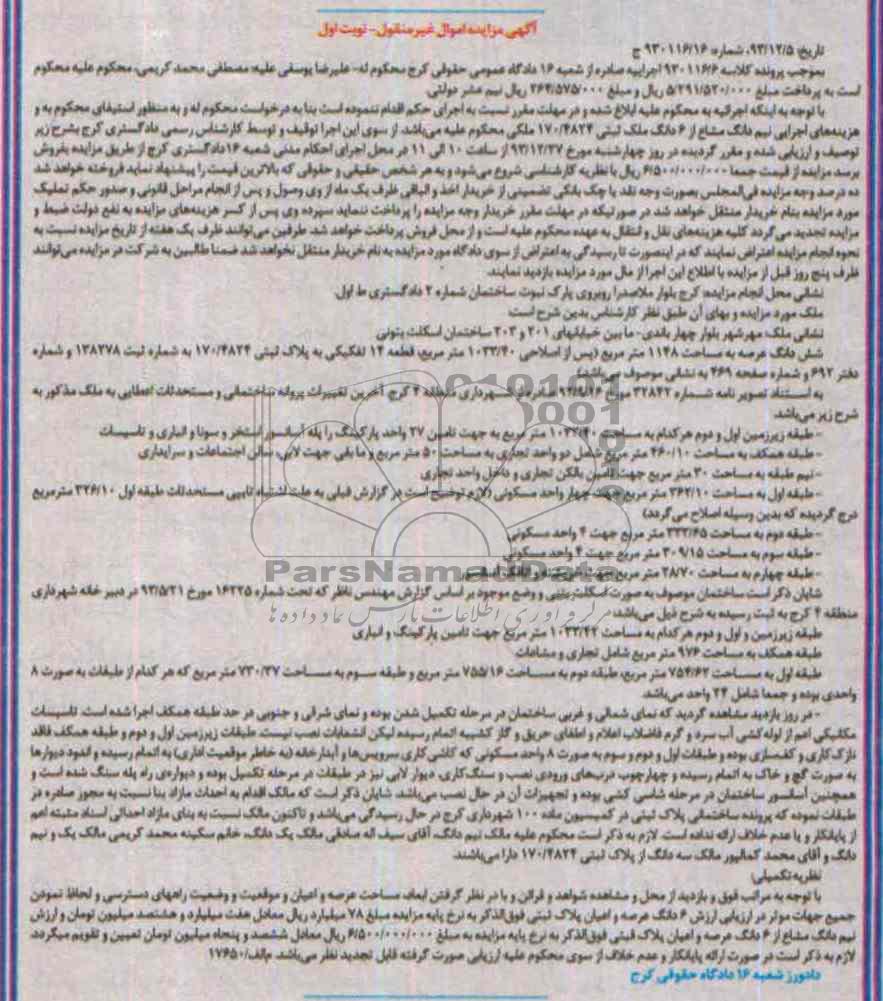 آگهی مزایده اموال غیرمنقول - نوبت اول
تاریخ: ۹۳/۱۲/۵، شماره: ۹۳۰۱۱۶/۱۶ ج
بموجب پرونده کلاسه ۹۳۰۱۱۶/۶ اجراییه صادره از شعبه ۱۶ دادگاه عمومی حقوقی کرج محکوم له- علیرضا یوسفی علیه: مصطفی محمد کریمی، محکوم علیه محکوم
است به پرداخت مبلغ ۵/۲۹۱/۵۲۰/۰۰۰ ریال و مبلغ ۲۶۴/۵۷۵/۰۰۰ ریال نیم عشر دولتی.
با توجه به اینکه اجرائیه به محکوم علیه ابلاغ شده و در مهلت مقرر نسبت به اجرای حکم اقدام ننموده است بنا به درخواست محکوم له و به منظور استیفای محکوم به و
هزینه‌های اجرایی نیم دانگ مشاع از ۶ دانگ ملک ثبتی ۱۷۰/۴۸۲۴ ملکی محکوم علیه می‌باشد، از سوی این اجرا توقیف و توسط کارشناس رسمی دادگستری کرج بشرح زیر
توصیف و ارزیابی شده و مقرر گردیده در روز چهارشنبه مورخ ۹۳/۱۲/۲۷ از ساعت ۱۰ الی ۱۱ در محل اجرای احکام مدنی شعبه ۱۶ دادگستری کرج از طریق مزایده بفروش
برسد مزایده از قیمت جمعا ۶/۵۰۰/۰۰۰/۰۰۰ ریال با نظریه کارشناسی شروع می‌شود و به هر شخص حقیقی و حقوقی که بالاترین قیمت را پیشنهاد نماید فروخته خواهد شد
ده درصد وجه مزایده فی‌المجلس بصورت وجه نقد یا چک بانکی تضمینی از خریدار اخذ و الباقی ظرف یک ماه از وی وصول و پس از انجام مراحل قانونی و صدور حکم تملیک
مورد مزایده بنام خریدار منتقل خواهد شد در صورتیکه در مهلت مقرر خریدار وجه مزایده را پرداخت ننماید سپرده وی پس از کسر هزینه‌های مزایده به نفع دولت ضبط و
مزایده تجدید می‌گردد کلیه هزینه‌های نقل و انتقال به عهده محکوم علیه است و از محل فروش پرداخت خواهد شد. طرفین می‌توانند ظرف یک هفته از تاریخ مزایده نسبت به
نحوه انجام مزایده اعتراض نمایند که در اینصورت تا رسیدگی به اعتراض از سوی دادگاه مورد مزایده به نام خریدار منتقل نخواهد شد ضمنا طالبین به شرکت در مزایده می‌توانند
ظرف پنج روز قبل از مزایده با اطلاع این اجرا از مال مورد مزایده بازدید نمایند.
نشانی محل انجام مزایده: کرج بلوار ملاصدرا روبروی پارک نبوت ساختمان شماره ۲ دادگستری ط اول.
ملک مورد مزایده و بهای آن طبق نظر کارشناس بدین شرح است:
نشانی ملک: مهرشهر بلوار چهار باندی- ما بین خیابانهای ۲۰۱ و ۲۰۳ ساختمان اسکلت بتونی
شش دانگ عرصه به مساحت ۱۱۴۸ متر مربع (پس از اصلاحی ۱۰۳۳/۴۰ متر مربع، قطعه ۱۲ تفکیکی به پلاک ثبتی ۱۷۰/۴۸۲۴ به شماره ثبت ۱۳۸۲۷۸ و شماره
دفتر ۶۹۲ و شماره صفحه ۴۶۹ به نشانی موصوف می‌باشد)
به استناد تصویر نامه شماره ۳۲۸۴۲ مورخ صادره از شهرداری منطقه ۴ کرج آخرین تغییرات پروانه ساختمانی و مستحدثات اعطایی به ملک مذکور به
شرح زیر می‌باشد.
- طبقه زیرزمین اول و دوم هرکدام به مساحت ۱۰۳۳/۴۰ متر مربع به جهت تامین ۲۷ واحد پارکینگ، راه پله آسانسور استخر و سونا و انباری و تاسیسات
- طبقه همکف به مساحت ۴۶۰/۱۰ متر مربع شامل دو واحد تجاری به مساحت ۵۰ متر مربع و ما بقی جهت لابی، سالن اجتماعات و سرایداری
- نیم طبقه به مساحت ۳۰ متر مربع جهت تامین بالکن تجاری و داخل واحد تجاری
- طبقه اول به مساحت ۳۶۲/۱۰ متر مربع جهت چهار واحد مسکونی (لازم توضیح است در گزارش قبلی به علت اشتباه تایپی مستحدثات طبقه اول ۳۲۶/۱۰ مترمربع
درج گردیده که بدین وسیله اصلاح می‌گردد)
- طبقه دوم به مساحت ۳۳۳/۶۵ متر مربع جهت ۴ واحد مسکونی
- طبقه سوم به مساحت ۳۰۹/۱۵ متر مربع جهت ۴ واحد مسکونی
- طبقه چهارم به مساحت ۲۸/۷۰ متر مربع
شایان ذکر است ساختمان موصوف به صورت اسکلت بتنی و وضع موجود بر اساس گزارش مهندس ناظر که تحت شماره ۱۶۲۲۵ مورخ ۹۳/۵/۲۱ در دبیر خانه شهرداری
منطقه ۴ کرج به ثبت رسیده به شرح ذیل می‌باشد:
طبقه زیرزمین و اول و دوم هر کدام به مساحت ۱۰۳۳/۴۲ متر مربع جهت تامین پارکینگ و انباری
طبقه همکف به مساحت ۹۷۶ متر مربع شامل تجاری و مشاعات
طبقه اول به مساحت ۷۵۴/۶۲ متر مربع، طبقه دوم به مساحت ۷۵۵/۱۶ متر مربع و طبقه سوم به مساحت ۷۳۰/۳۷ متر مربع که هر کدام از طبقات به صورت ۸
واحدی بوده و جمعا شامل ۲۴ واحد می‌باشد.
- در روز بازدید مشاهده گردید که نمای شمالی و غربی ساختمان در مرحله تکمیل شدن بوده و نمای شرقی و جنوبی در حد طبقه همکف اجرا شده است. تاسیسات
مکانیکی اعم از لوله کشی آب سرد و گرم فاضلاب اعلام و اطفای حریق و گاز کشییه اتمام رسیده لیکن انشعابات نصب نیست. طبقات زیرزمین اول و دوم و طبقه همکف فاقد
نازک کاری و کف‌سازی بوده و طبقات اول و دوم و سوم به صورت ۸ واحد مسکونی که کاشی کاری سرویس‌ها و آبدارخانه (به خاطر موقعیت اداری) به اتمام رسیده و اندود دیوارها
به صورت گچ و خاک به اتمام رسیده و چهارچوب درب‌های ورودی نصب و سنگ‌کاری، دیوار لابی نیز در طبقات در مرحله تکمیل بوده و دیواره‌ی راه پله سنگ شده است و
همچنین آسانسور ساختمان در مرحله شاسی کشی بوده و تجهیزات آن در حال نصب می‌باشد. شایان ذکر است که مالک اقدام به احداث مازاد بنا نسبت به مجوز صادره در
طبقات نموده که پرونده ساختمانی پلاک ثبتی در کمیسیون ماده ۱۰۰ شهرداری کرج در حال رسیدگی می‌باشد و تاکنون مالک نسبت به بنای مازاد احداثی اسناد مثبته اعم
از پایانکار و یا عدم خلاف ارائه نداده است. لازم به ذکر است محکوم علیه مالک نیم دانگ، آقای سیف اله صادقی مالک یک دانگ، خانم سکینه محمد کریمی مالک یک و نیم
دانگ و آقای محمد کمالپور مالک سه دانگ از پلاک ثبتی ۱۷۰/۴۸۲۴ دارا می‌باشند.
نظریه تکمیلی:
با توجه به مراتب فوق و بازدید از محل و مشاهده شواهد و قرائن و با در نظر گرفتن ابعاد، مساحت عرصه و اعیان و موقعیت و وضعیت راههای دسترسی و لحاظ نمودن
جمیع جهات موثر در ارزیابی ارزش ۶ دانگ عرصه و اعیان پلاک ثبتی فوق‌الذکر به نرخ پایه مزایده مبلغ ۷۸ میلیارد ریال معادل هفت میلیارد و هشتصد میلیون تومان و ارزش
نیم دانگ مشاع از ۶ دانگ عرصه و اعیان پلاک قبتی فوق‌الذکر به نرخ پایه مزایده به مبلغ ۶/۵۰۰/۰۰۰/۰۰۰ ریال معادل ششصد و پنجاه میلیون تومان تعیین و تقویم میگردد.
لازم به ذکر است در صورت ارائه پایانکار و عدم خلاف از سوی محکوم علیه ارزیابی صورت گرفته قابل تجدید نظر می‌باشد. م/الف/۱۷۶۵۰
دادورز شعبه ۱۶ دادگاه حقوقی کرج
ParsNamadData
مرکز فرآوری اطلاعات پارس نماد داده ها